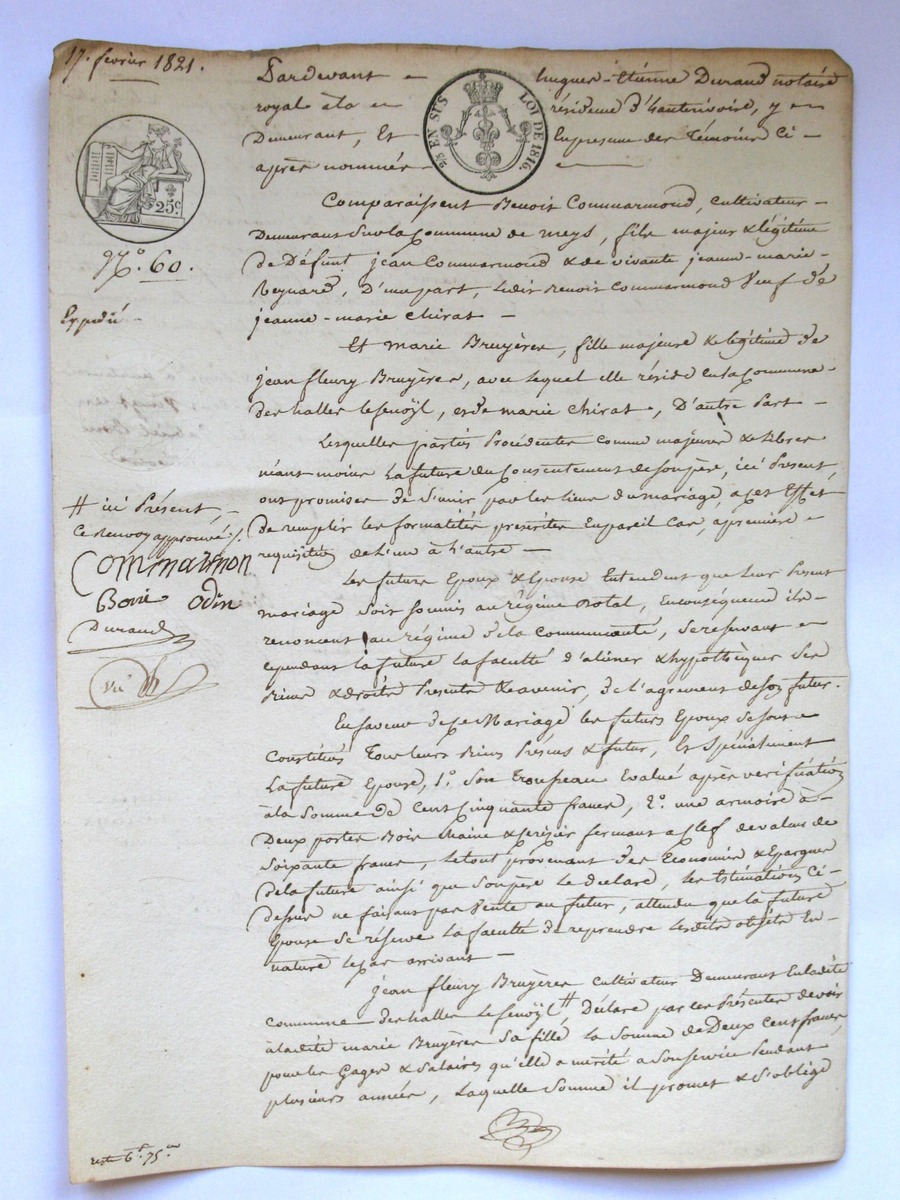 17. fevrier 1821.
Pardevant hugues-Etienne Durand notaire
royal à la résidence d'hauterivoire, y
Demeurant, Et En presence des Témoins Ci-
après nommés
2/8 EN SUS LOI DE 1816.
25c.
N°. 60.
Expédié
Comparaissent Benoit Commarmond, cultivateur
Demeurant Sur la Commune de meys, fils majeur & légitime
de Défunt jean Commarmond & de vivante jeanne-marie
Reynard, D'une part, Ledit Benoit Commarmond Veuf de
jeanne-marie Chirat
Et marie Bruyères, fille majeure & légitime de
jean fleury Bruyères, avec lequel elle réside En la Commune
des halles Lefenoÿl, et de marie Chirat, D'autre Part
Lesquelles parties Procédentes Comme majeures & Libres
néant-moins La future du Consentement de Son père, ici Present,
ont promises de S'unir par les liens du mariage, a Cet Effet
de remplir les formalités prescrites En pareil Cas, a première
requisition de L'une à L'autre
Les futurs Epoux & Epouse Entendent que Leur Present
mariage Soit Soumis au régime Dotal, En conséquence ils
renoncent au régime de la Communauté, Se réservant
Cependant La future La faculté d'aliéner & hypothéquer Ses
Biens & droits Presents & avenir, de l'agrement de Son futur.
En faveur de Ce Mariage les futurs Epoux Se Sont
Constitués Tous leurs Biens Présens & futurs, Et Spécialement
La future Epouse, 1°. Son Trousseau Evalué après vérification
à la Somme de Cent Cinquante francs, 2°. une armoire à
Deux portes Bois & Cerisier fermant a Clef de valeur de
Soixante francs, Le tout provenant des Economies & Epargnes
de la future ainsi que Son père Le déclare, les Estimations Ci-
dessus ne faisant pas Vente au futur, attendu que la future
Epouse Se réserve La faculté de reprendre Lesdits objets En
nature Le Cas arrivant
jean fleury Bruyères Cultivateur Demeurant En ladite
Commune des halles Lefenoÿl, # Déclare par Ces Présentes devoir
à ladite marie Bruyères Sa fille La Somme de Deux Cent francs,
pour les Gages & Salaires qu'elle a mérité a Son Service Pendant
plusieurs années, Laquelle Somme il promet & S'oblige
# ici Présent,
Ce renvoy approuvé
Commarmon
Bonié Odin
Durand
Vu
reste 6f. 75c.